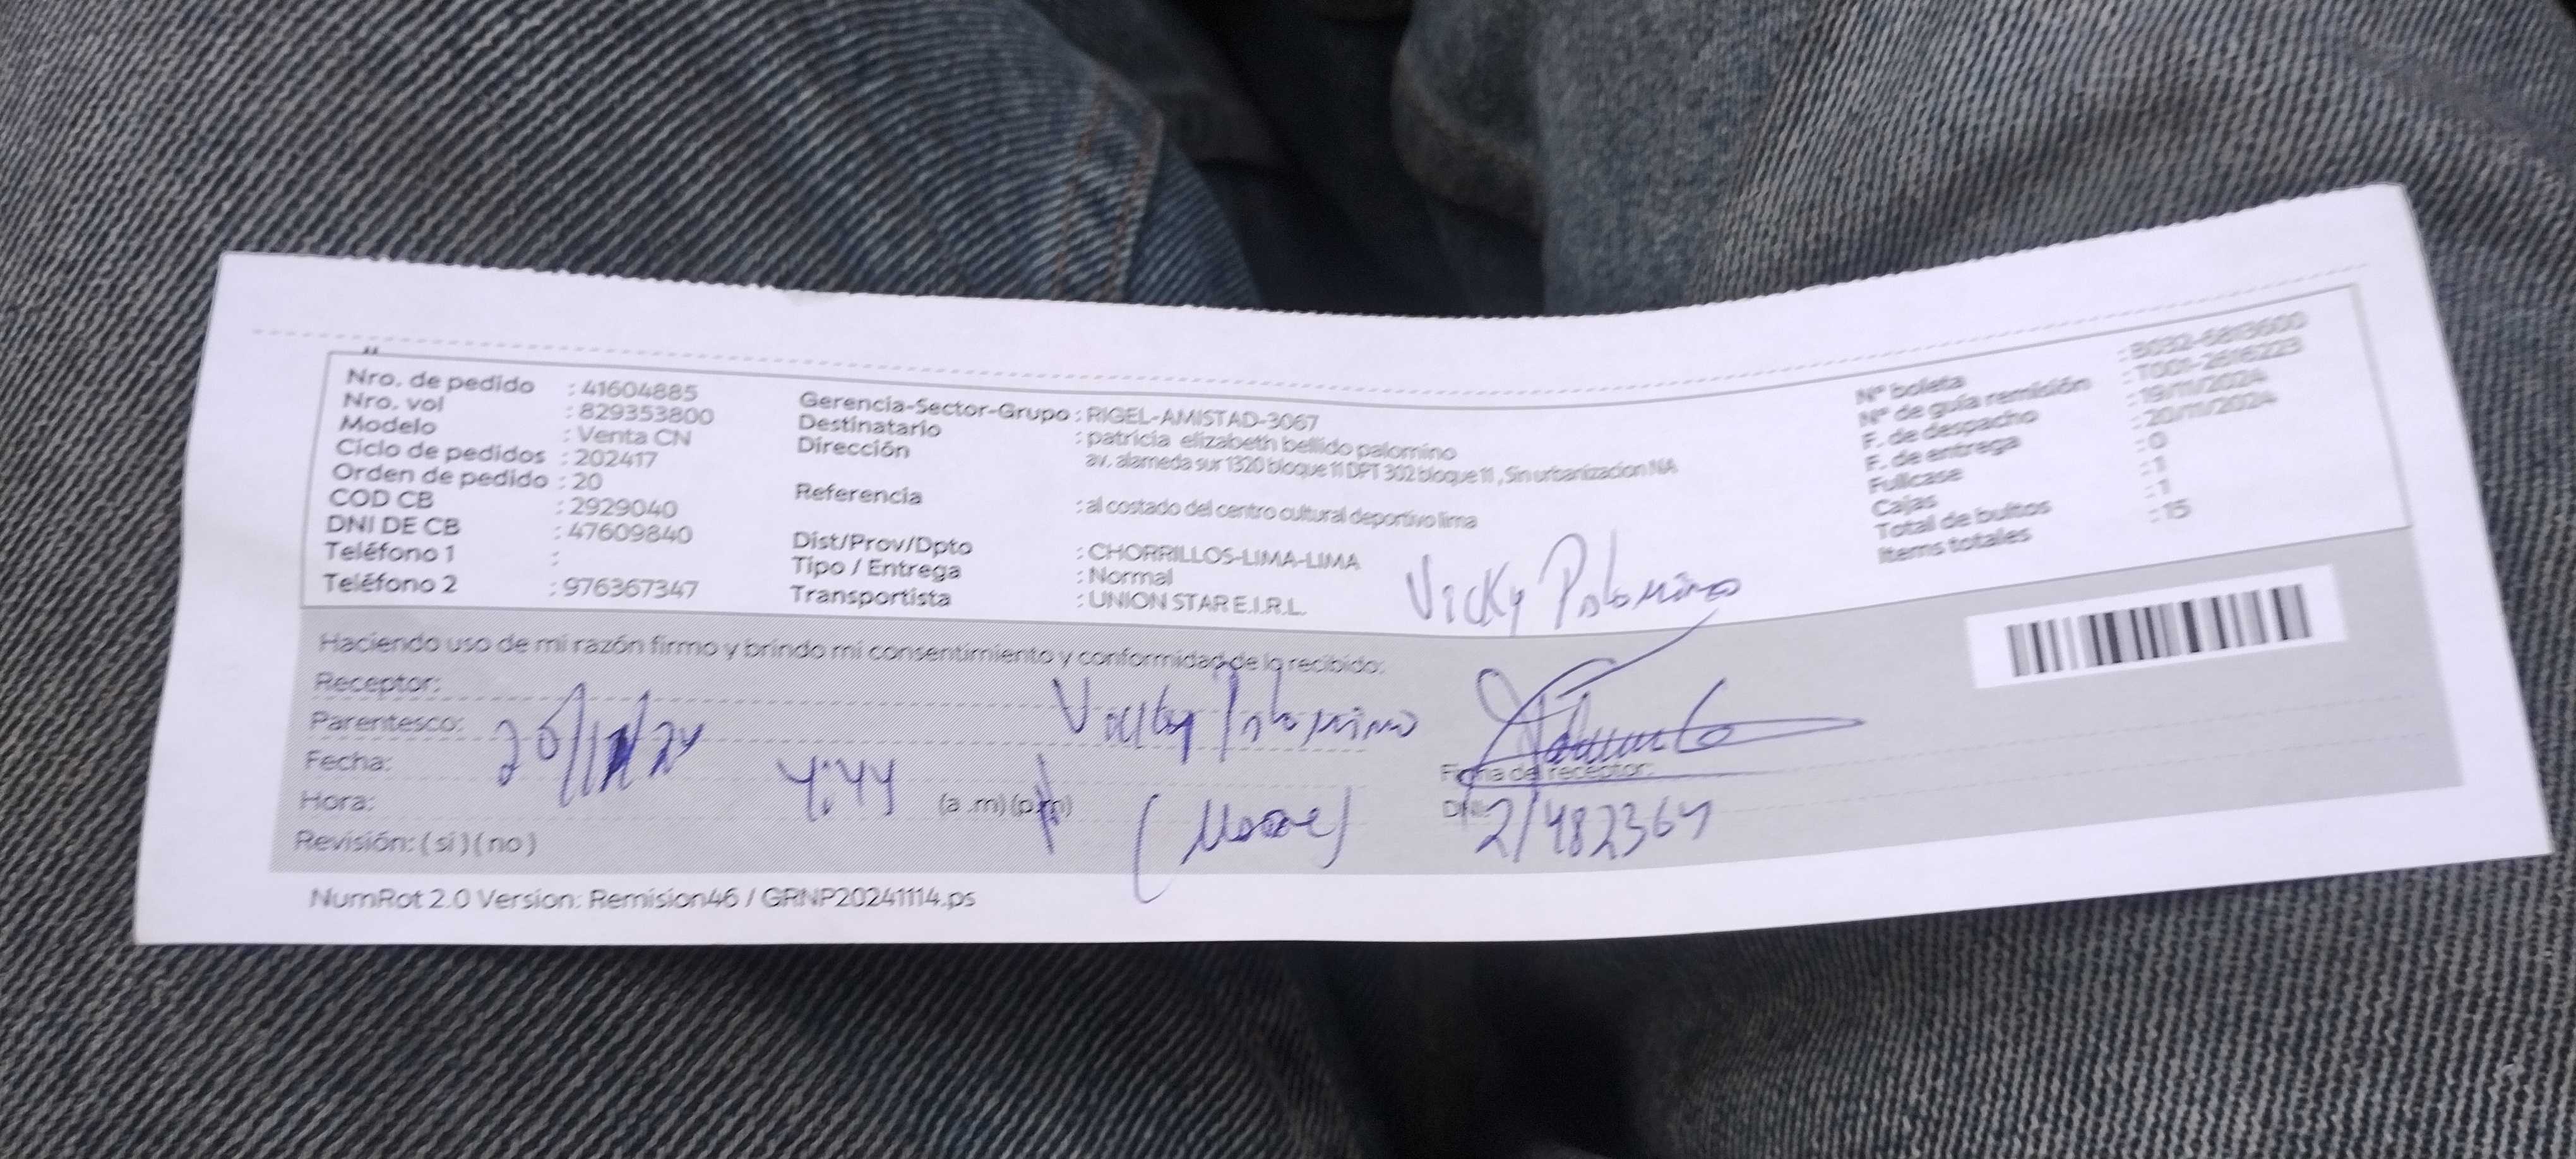 Nro. de pedido : 41604885
Nro. vol : 829353800
Modelo : Venta CN
Ciclo de pedidos : 202417
Orden de pedido : 20
COD CB : 2929040
DNI DE CB : 47609840
Teléfono 1 :
Teléfono 2 : 976367347
Gerencia-Sector-Grupo : RIGEL-AMISTAD-3067
Destinatario : patricia elizabeth bellido palomino
Dirección av. alameda sur 1320 bloque 11 DPT 302 bloque 11 , Sin urbanizacion NA
Referencia : al costado del centro cultural deportivo lima
Dist/Prov/Dpto : CHORRILLOS-LIMA-LIMA
Tipo / Entrega : Normal
Transportista : UNION STAR E.I.R.L.
Vicky Palomino
Nº boleta : B032-6813600
Nº de guía remisión : T001-2616223
F. de despacho : 19/11/2024
F. de entrega : 20/11/2024
Fullcase : 0
Cajas : 1
Total de bultos : 1
Items totales : 15
Haciendo uso de mi razón firmo y brindo mi consentimiento y conformidad de lo recibido:
Receptor:
Parentesco: Vicky Palomino
Fecha: 20/11/24
Hora: 4:44 (a .m) (p.m)
Firma del receptor:
DNI: 21482364
Revisión: ( si ) ( no )
NumRot 2.0 Version: Remision46 / GRNP20241114.ps